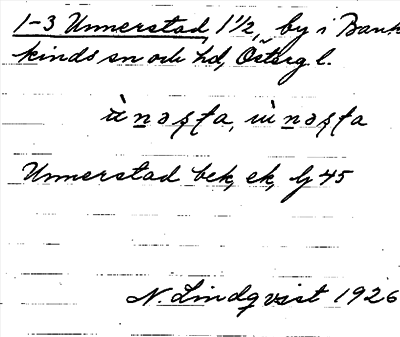 1-3 Unnerstad, 1 1/2, by i Bank
kinds sn och hd, Österg l.
Unnerstad bek, ek, by 45
N. Lindqvist 1926